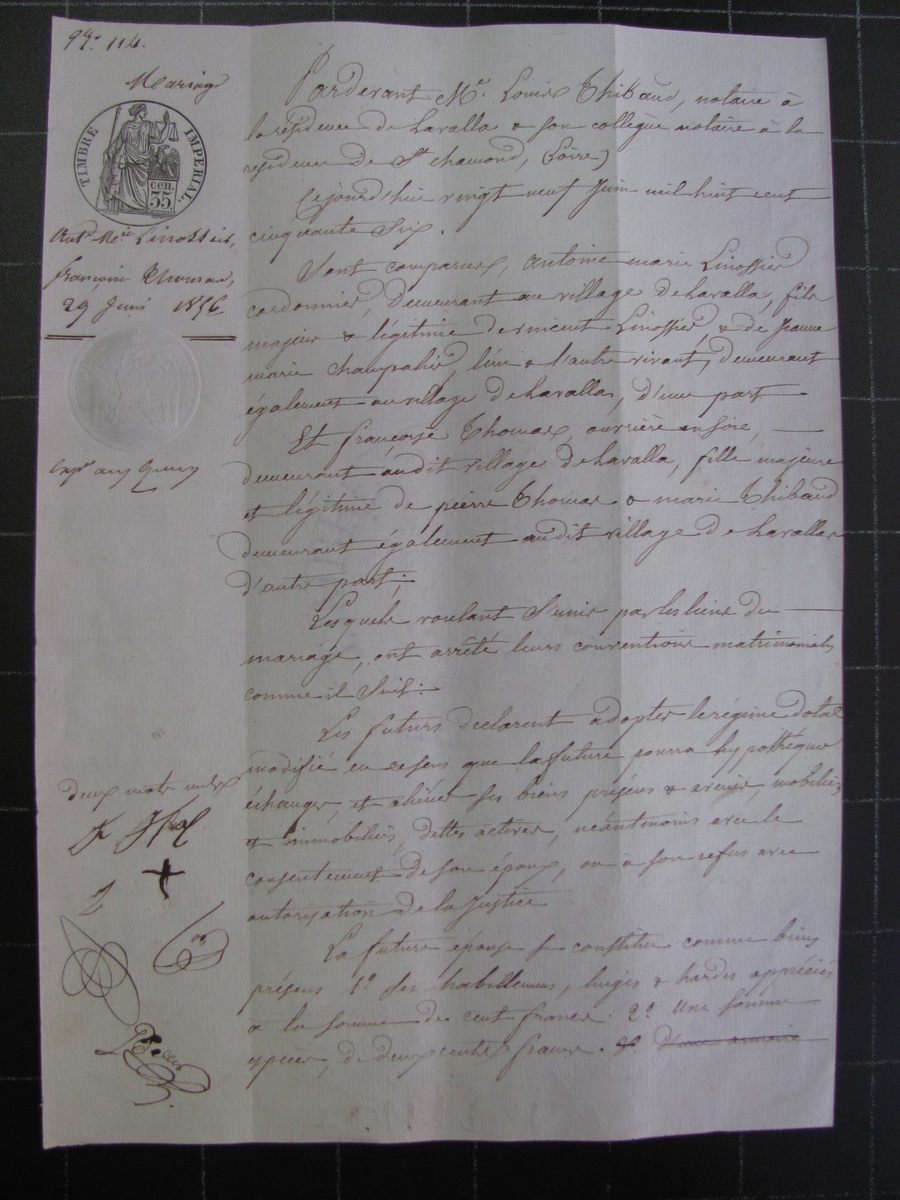 Mariage
TIMBRE IMPERIAL.
35 cen.
Ant.e M.ie Linossier,
françoise Thomas,
29 Juin 1856
Pardevant M.e Louis Thibaud, notaire à
la résidence de Lavalla & son collègue notaire à la
résidence de S.t chamond, (Loire)
Cejourd'hui vingt neuf Juin mil huit cent
cinquante Six.
Sont comparus, antoine marie Linossier
cordonnier, demeurant au village de Lavalla, fils
majeur & légitime de vincent Linossier, & de Jeanne
marie Champalier, l'un & l'autre vivant, demeurant
également au village de Lavalla, d'une part
Et françoise Thomas, ouvrière en soie,
demeurant audit village de Lavalla, fille majeure
et légitime de pierre Thomas & marie Thibaud
demeurant également audit village de Lavalla,
d'autre part;
Lesquels voulant S'unir par les liens du
mariage, ont arrêté leurs conventions matrimoniales
comme il Suit:
Les futurs déclarent adopter le régime dotal
modifié en ce sens que la future pourra hypothéquer
échanger, et aliéner ses biens présens & avenir, mobiliers
& immobiliers, dettes actives, néantmoins avec le
consentement de son époux, ou à son refus avec
autorisation de la Justice
La future épouse se constitue comme biens
présens 1.o ses habillemens, linges & hardes appréciés
à la somme de cent francs. 2.o Une somme
espèces, de deux cents francs. & d'une armoire
deux mots nuls